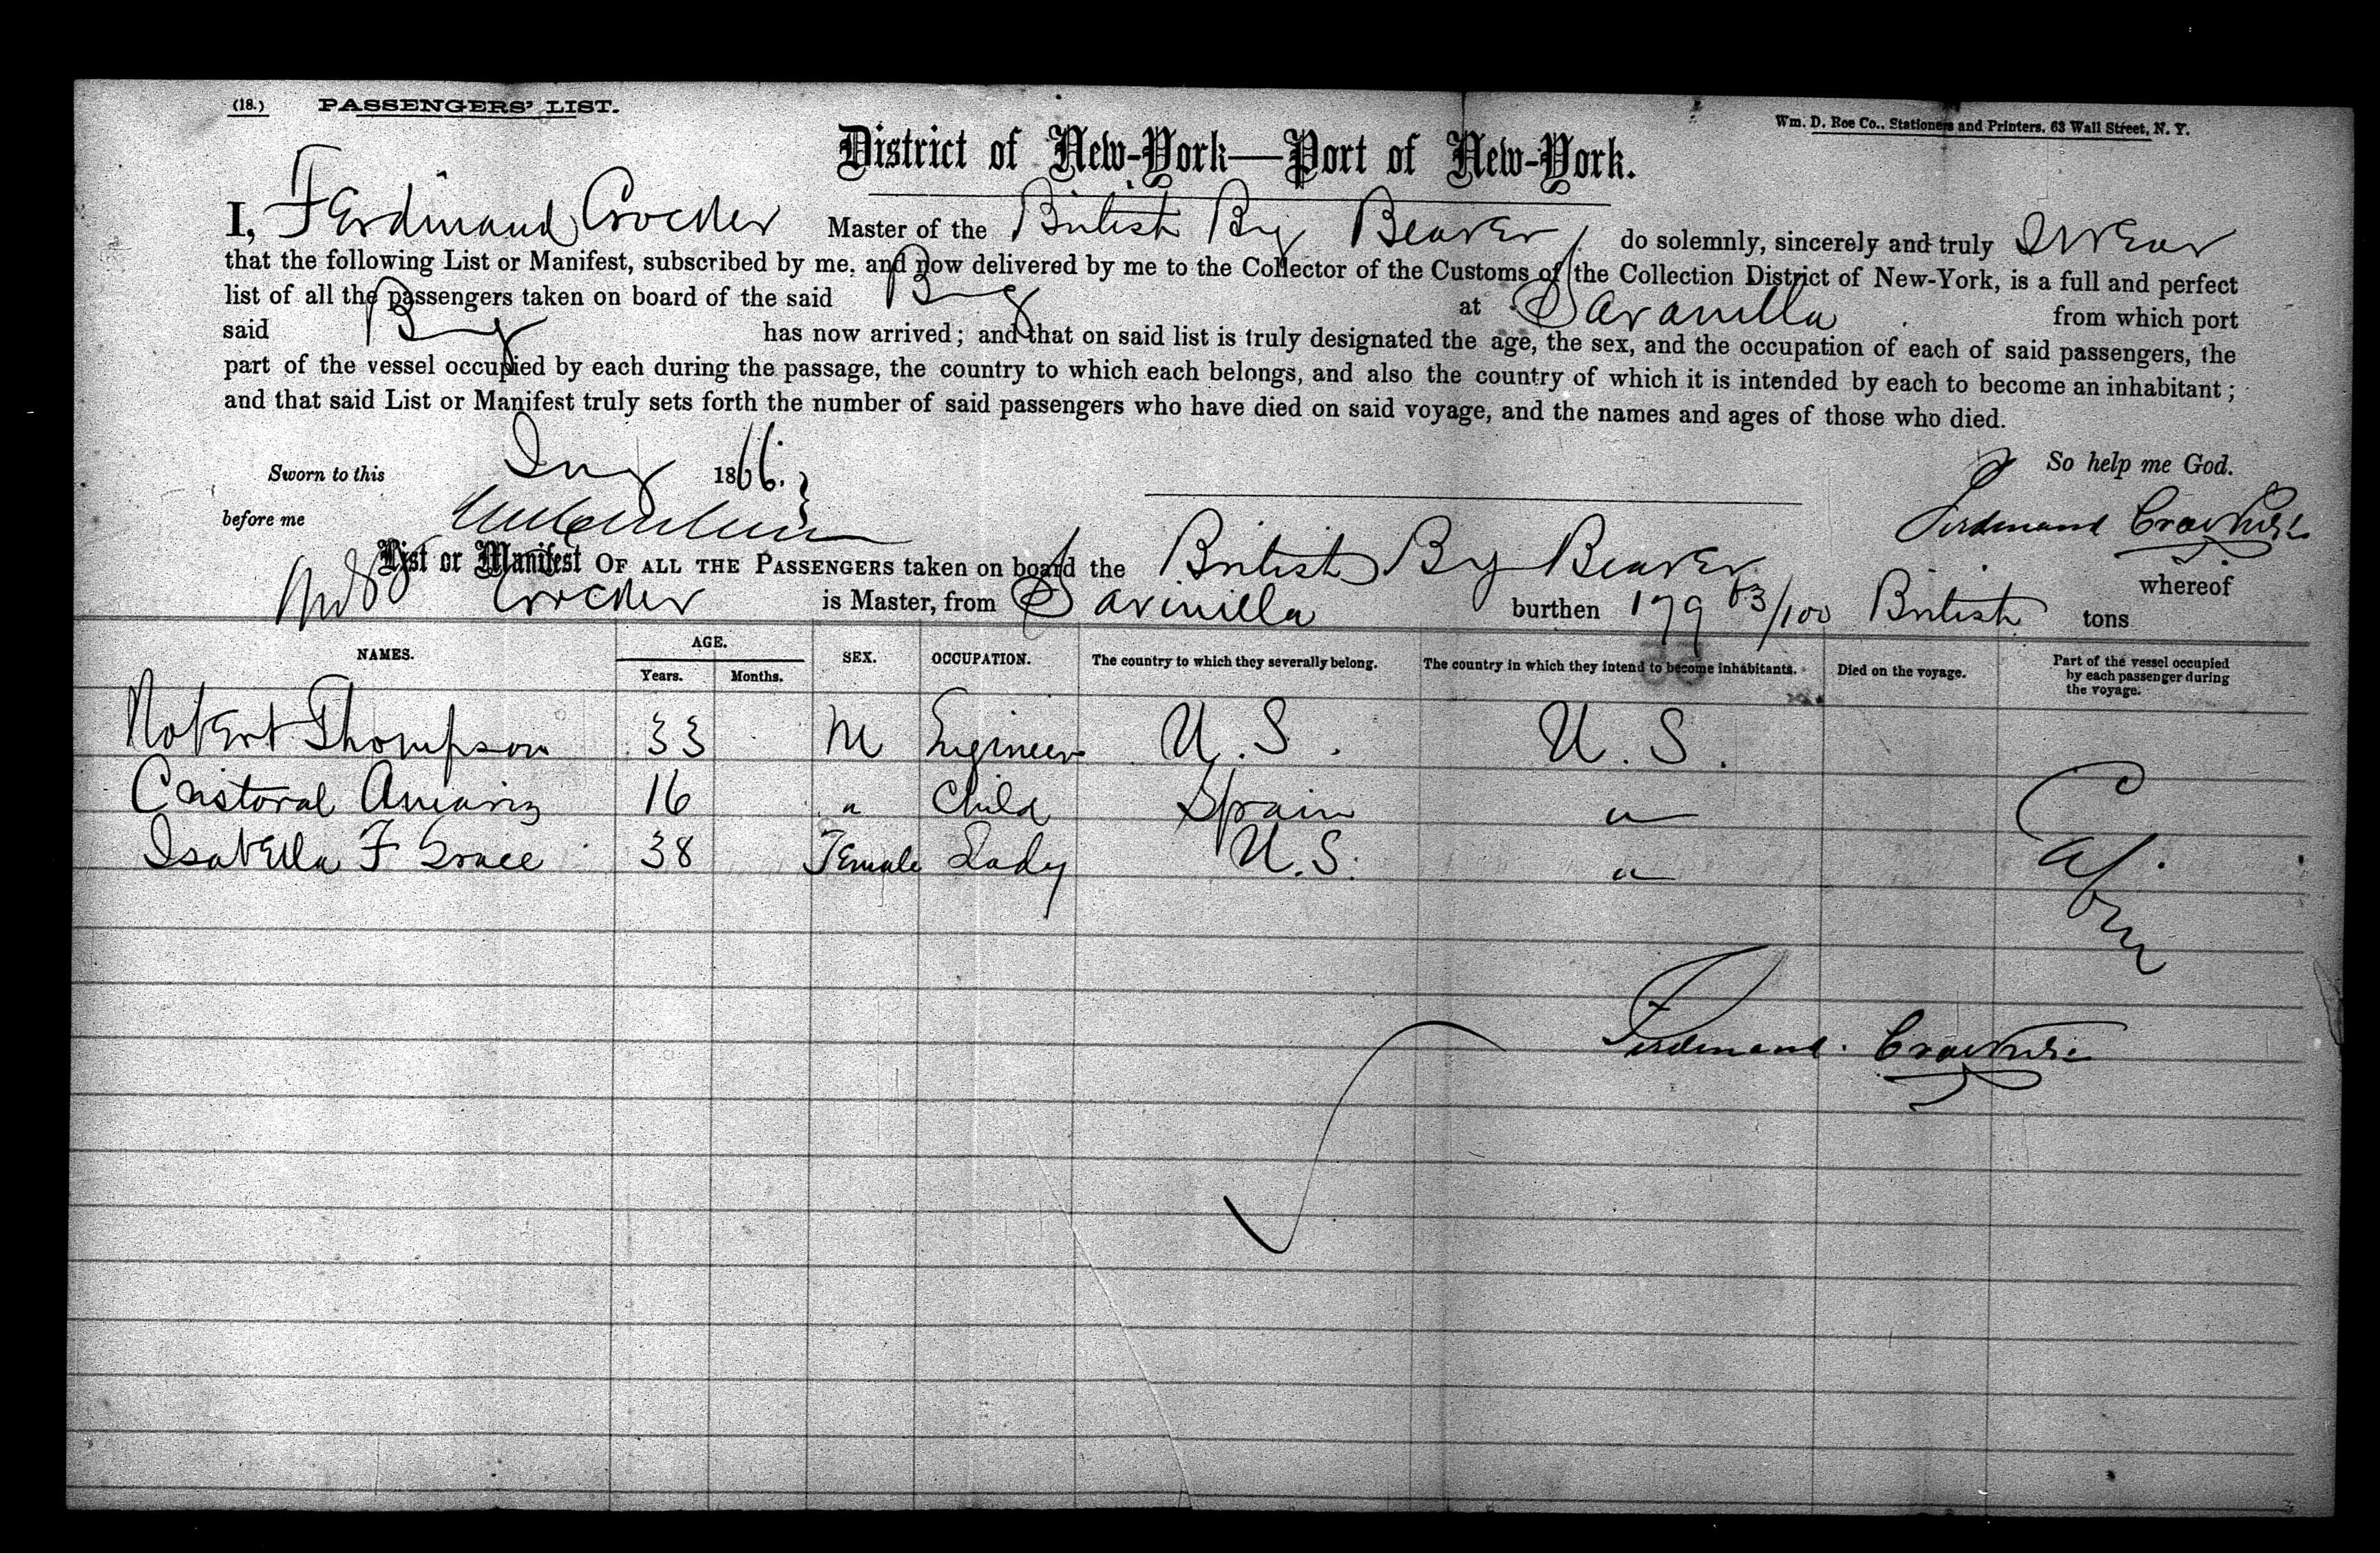 (18.) PASSENGERS' LIST.
Wm. D. Roe Co., Stationers and Printers, 63 Wall Street, N. Y.
District of New-York—Port of New-York.
I, Ferdinand Crocker Master of the British Brig Beaver do solemnly, sincerely and truly Swear
that the following List or Manifest, subscribed by me, and now delivered by me to the Collector of the Customs of the Collection District of New-York, is a full and perfect
list of all the passengers taken on board of the said Brig at Savanilla from which port
said Brig has now arrived; and that on said list is truly designated the age, the sex, and the occupation of each of said passengers, the
part of the vessel occupied by each during the passage, the country to which each belongs, and also the country of which it is intended by each to become an inhabitant;
and that said List or Manifest truly sets forth the number of said passengers who have died on said voyage, and the names and ages of those who died.
Sworn to this 1866. So help me God.
before me Ferdinand
List or Manifest OF ALL THE PASSENGERS taken on board the British Brig Beaver whereof
Crocker is Master, from Savinilla burthen 179 63/100 British tons
NAMES. AGE. SEX. OCCUPATION. The country to which they severally belong. The country in which they intend to become inhabitants. Died on the voyage. Part of the vessel occupied by each passenger during the voyage.
Years. Months.
Robert Thompson 33 M Engineer U.S. U.S.
16 " Child Spain "
Isabella F Grace 38 Female Lady U.S. "
Cabin
Ferdinand